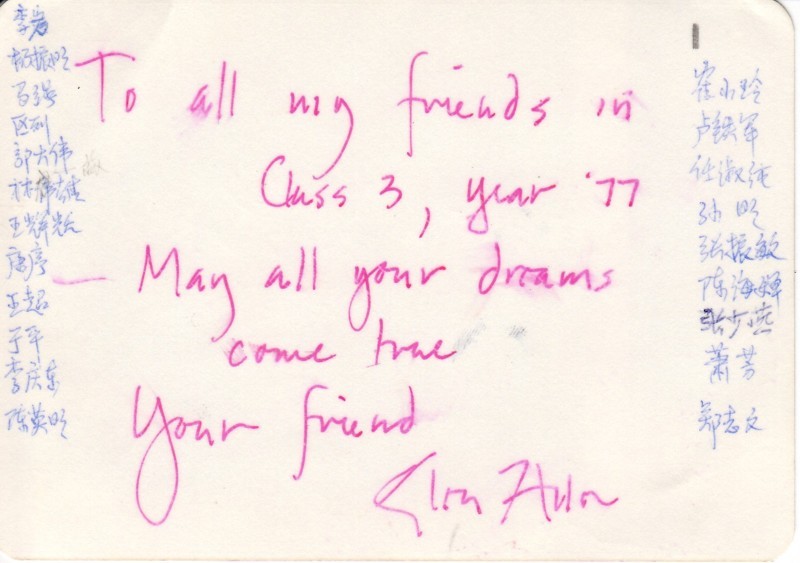 To all my friends in
Class 3, year '77
— May all your dreams
come true
Your friend
李岩
杨振明
马强
区列
郭大伟
林伟雄
王辉
唐序
王超
于平
李庆东
陈英明
崔小玲
卢铁军
任淑纯
孙明
张振敏
陈海婵
张少燕
萧芳
郑志文